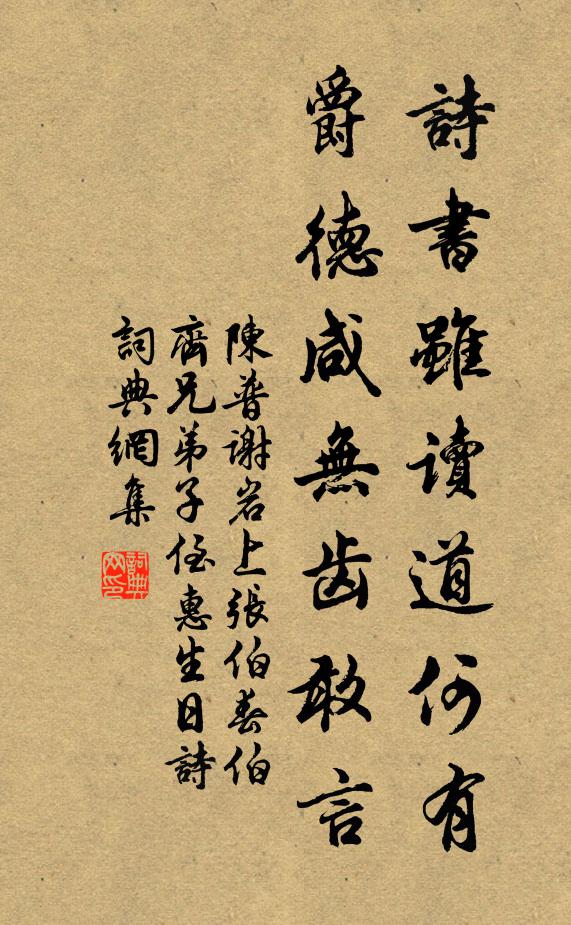 詩書雖讀道何有
爵德咸無齒敢言
陳普謝岩上張伯春伯
齊兄弟子侄惠生日詩
詞典網集
詞典网印